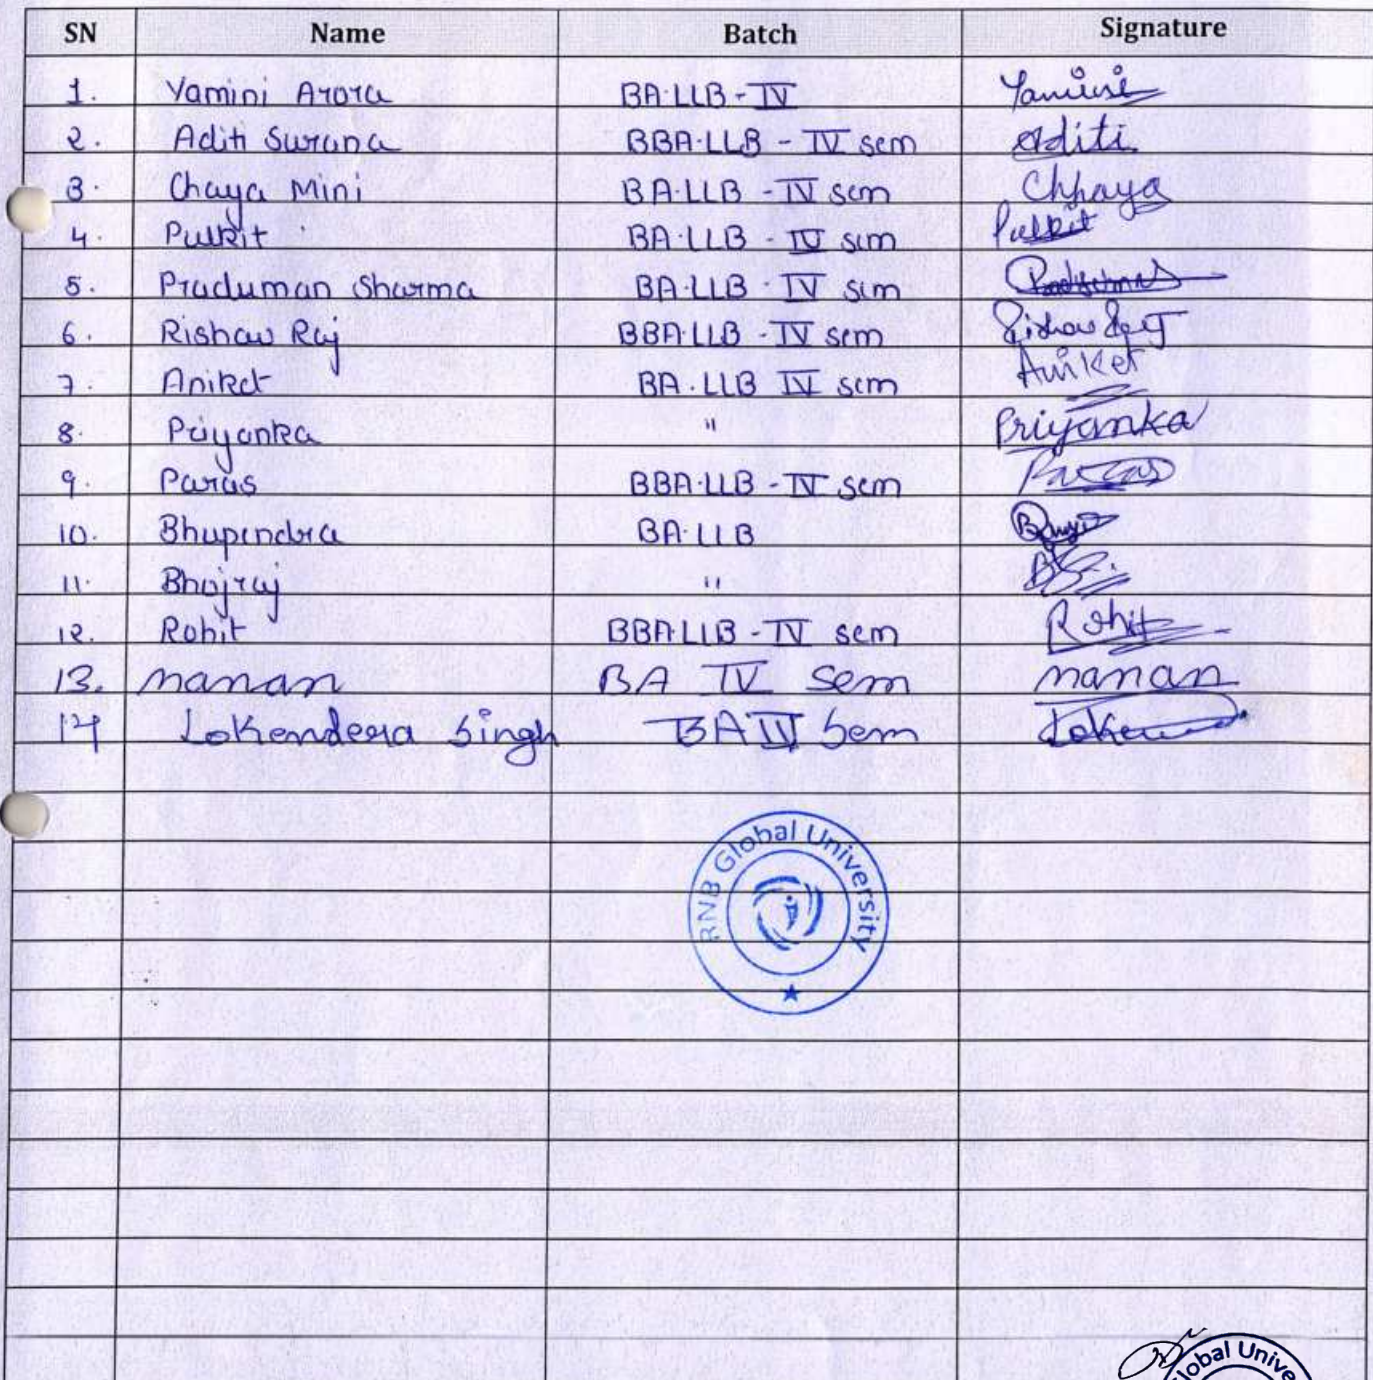 SN Name Batch Signature
1. Yamini Arora BA.LLB - IV Yamini
2. Aditi Surana BBA.LLB - IV sem Aditi
3. Chaya Mini BA.LLB - IV sem Chhaya
4. Pulkit BA.LLB - IV sem Pulkit
5. Praduman Sharma BA.LLB - IV sem
6. Rishaw Raj BBA.LLB - IV sem Rishaw Raj
7. Aniket BA.LLB IV sem Aniket
8. Priyanka " Priyanka
9. Paras BBA.LLB - IV sem Paras
10. Bhupendra BA.LLB
11. Bhojraj "
12. Rohit BBA LLB - IV sem Rohit
13. Manan BA IV Sem Manan
14 Lokendera Singh BA Sem
RNB Global University